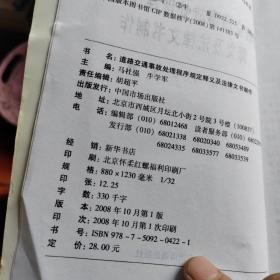 版本图书馆 CIP 数据核字（2008）第
书 名：道路交通事故处理程序规定释义及法律文书制作
主 编：马社强 牛学军
责任编辑：胡超平
出版发行：中国市场出版社
地 址：北京市西城区月坛北小街2号院3号楼（100837）
电 话：编辑部（010）68012468 读者服务部（010）
发行部（010）68021338 68020340 68053489
68024335 68033577 68033539
经 销：
印 刷：北京怀柔红螺福利印刷厂
规 格：880×1230毫米 1/32
印 张：12.25
字 数：330千字
版 次：2008年10月第1版
印 次：2008年10月第1次印刷
书 号：ISBN 978-7-5092-0422-1
定 价：28.00元